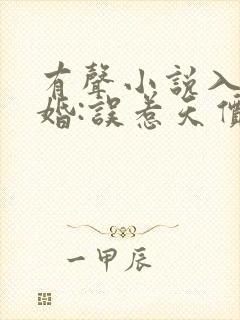 有聲小說入
婚:誤惹天價
一甲辰